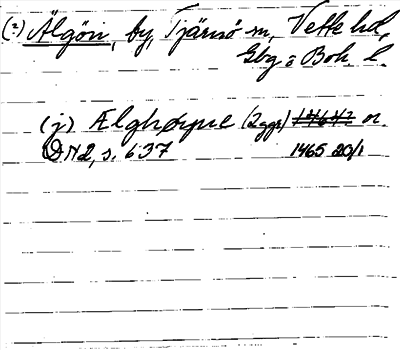 (?) Älgön, by, Tjärnö sn, Vette hd,
Gbg o Boh l.
(j) Ælghøyne (2 ggr) 1464/2 or.
DN 2, s. 637 1465 20/1